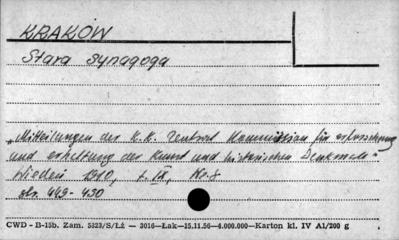 KRAKÓW
Stara synagoga
"Mitteilungen der K.K. Zentral Kommission für erforschung
und erhaltung der Kunst und historischen Denkmale"
Wiedeń 1910, t. IX, Nr. 8
str. 449-450
CWD - B-15b. Zam. 5323/S/Łż — 3016—Łak—15.11.56—4.000.000—Karton kl. IV A1/200 g